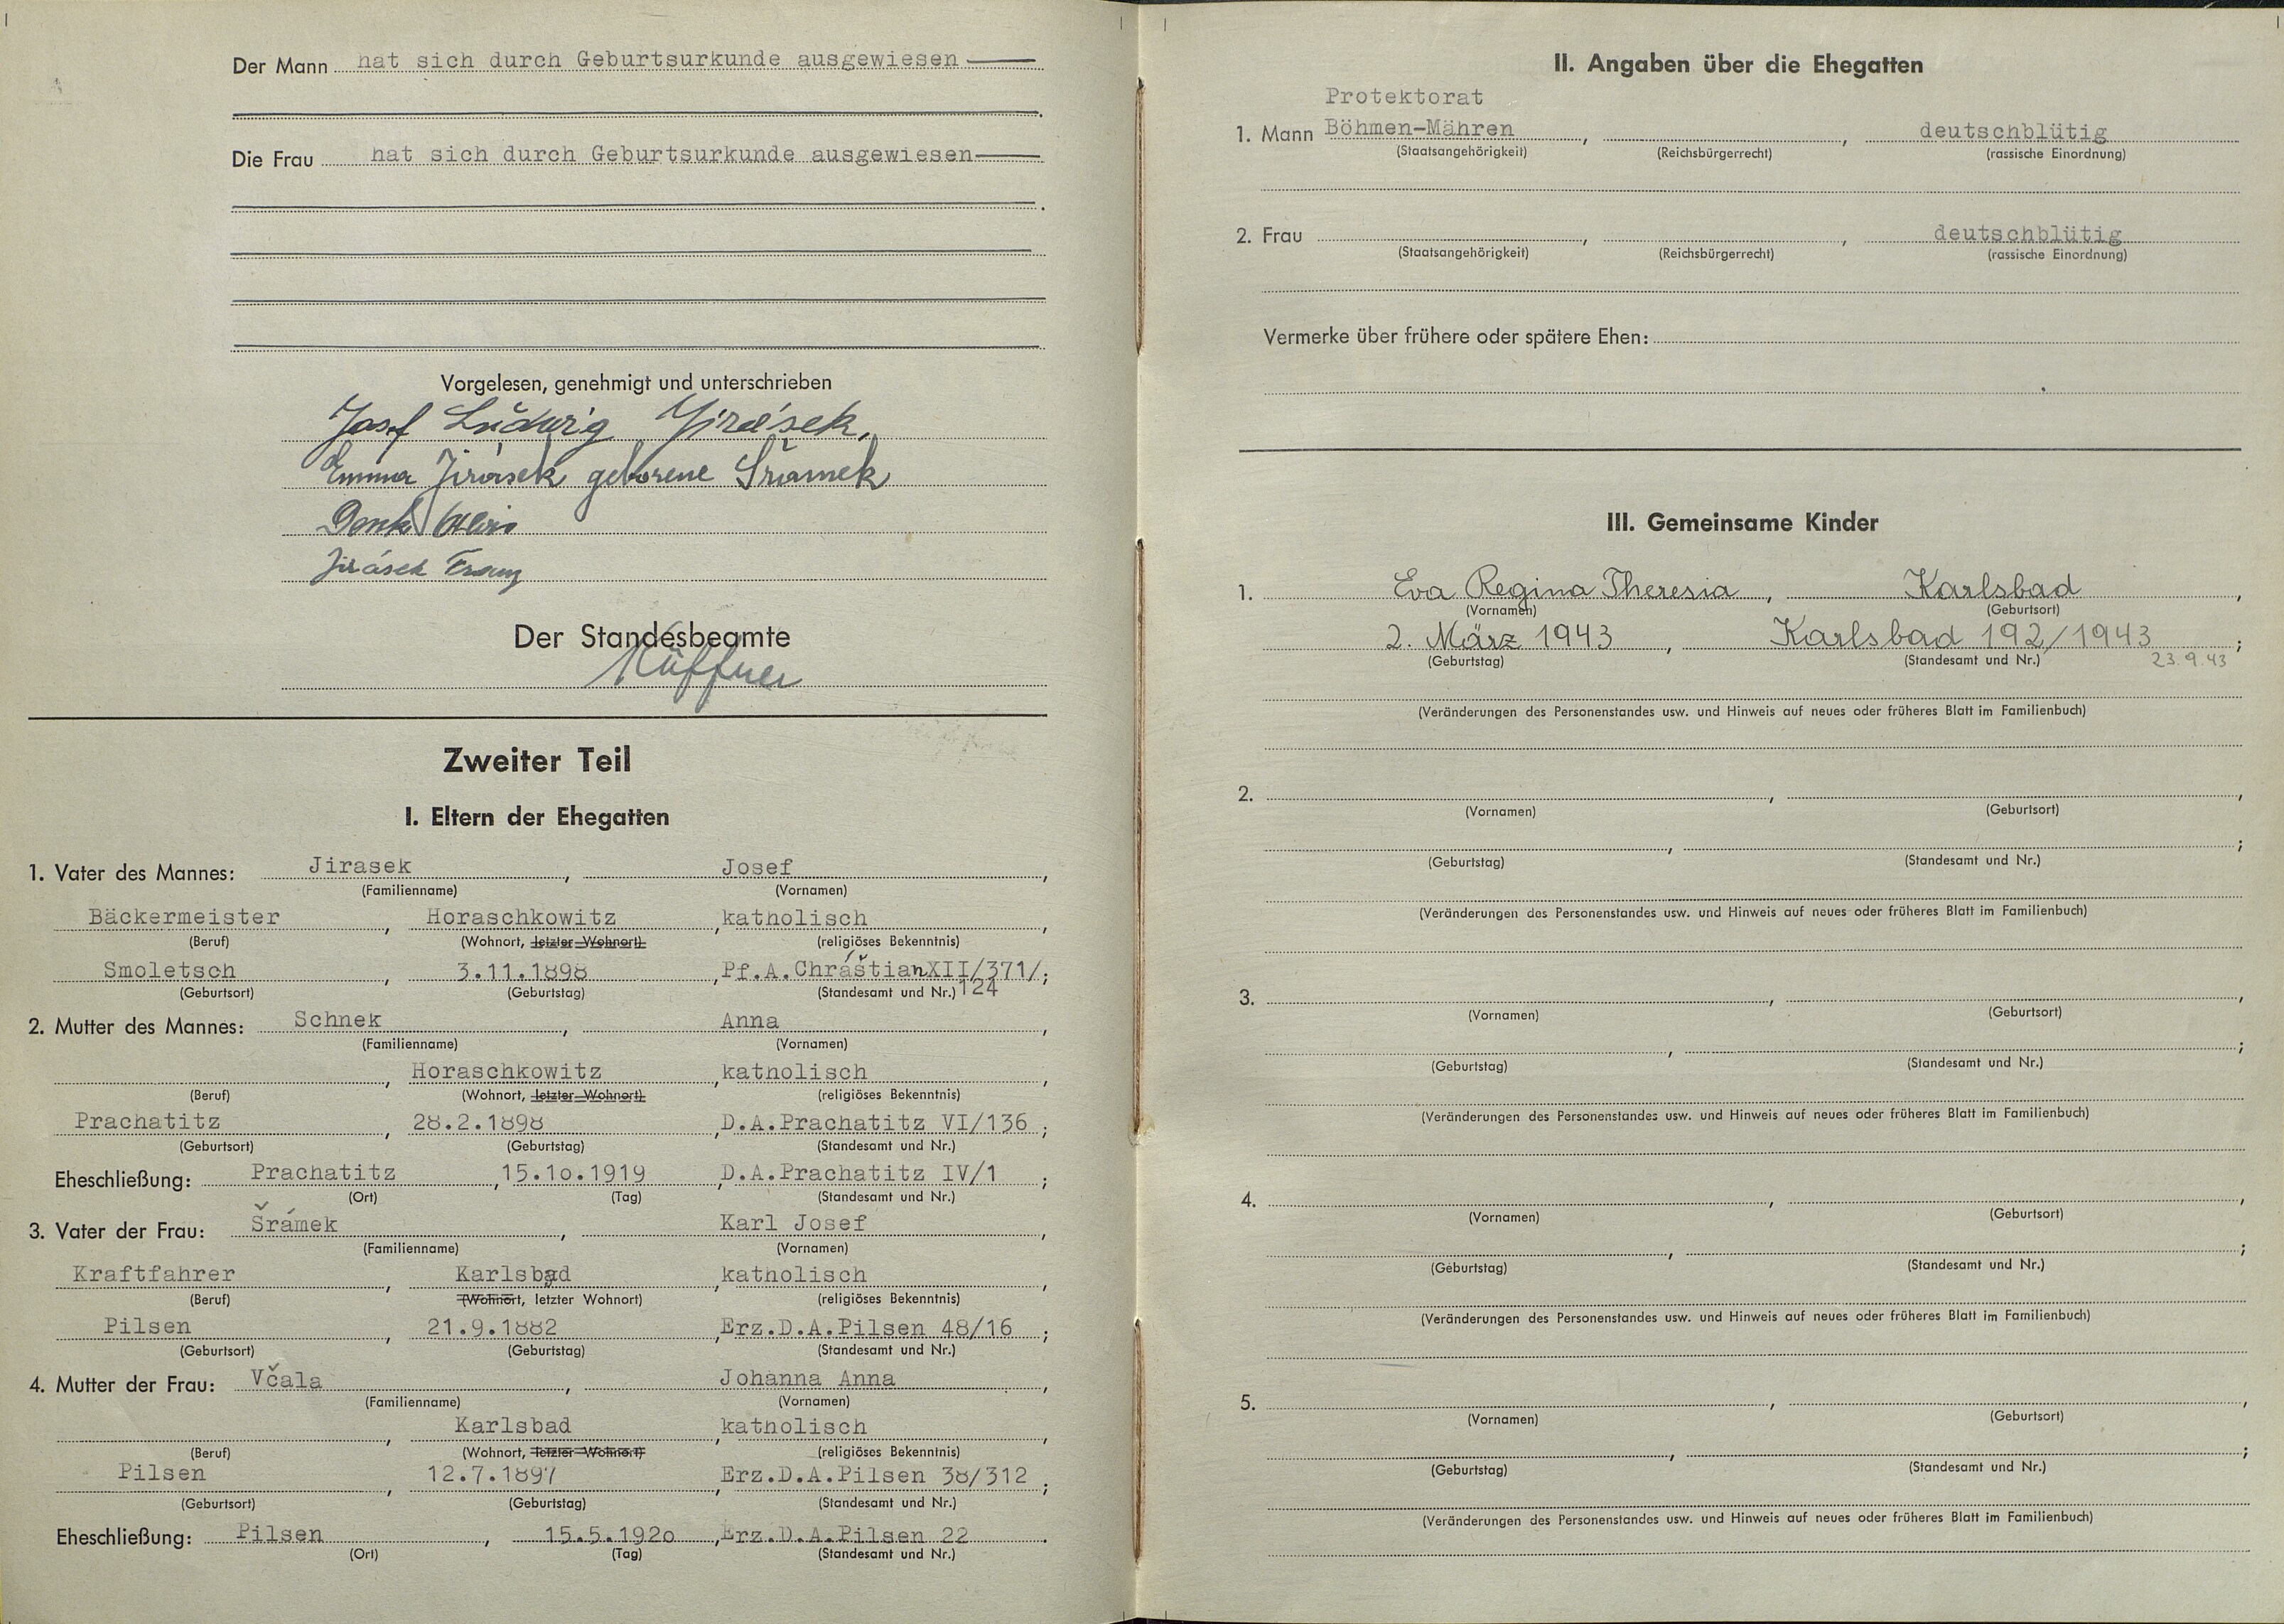 Der Mann hat sich durch Geburtsurkunde ausgewiesen
Die Frau hat sich durch Geburtsurkunde ausgewiesen
Vorgelesen, genehmigt und unterschrieben
Josef Ludwig Jirásek.
Emma Jirásek geborene Šrámek
Jirásek Franz
Der Standesbeamte
Zweiter Teil
I. Eltern der Ehegatten
1. Vater des Mannes: Jirasek, Josef,
(Familienname) (Vornamen)
Bäckermeister, Horaschkowitz, katholisch,
(Beruf) (Wohnort, letzter Wohnort) (religiöses Bekenntnis)
Smoletsch, 3.11.1898, Pf.A.ChráštianXII/371/;
(Geburtsort) (Geburtstag) (Standesamt und Nr.) 124
2. Mutter des Mannes: Schnek, Anna,
(Familienname) (Vornamen)
, Horaschkowitz, katholisch,
(Beruf) (Wohnort, letzter Wohnort) (religiöses Bekenntnis)
Prachatitz, 28.2.1898, D.A.Prachatitz VI/136;
(Geburtsort) (Geburtstag) (Standesamt und Nr.)
Eheschließung: Prachatitz, 15.1o.1919, D.A.Prachatitz IV/1;
(Ort) (Tag) (Standesamt und Nr.)
3. Vater der Frau: Šrámek, Karl Josef,
(Familienname) (Vornamen)
Kraftfahrer, Karlsbad, katholisch,
(Beruf) (Wohnort, letzter Wohnort) (religiöses Bekenntnis)
Pilsen, 21.9.1882, Erz.D.A.Pilsen 48/16;
(Geburtsort) (Geburtstag) (Standesamt und Nr.)
4. Mutter der Frau: Včala, Johanna Anna,
(Familienname) (Vornamen)
, Karlsbad, katholisch,
(Beruf) (Wohnort, letzter Wohnort) (religiöses Bekenntnis)
Pilsen, 12.7.1897, Erz.D.A.Pilsen 38/312;
(Geburtsort) (Geburtstag) (Standesamt und Nr.)
Eheschließung: Pilsen, 15.5.192o, Erz.D.A.Pilsen 22.
(Ort) (Tag) (Standesamt und Nr.)
II. Angaben über die Ehegatten
Protektorat
1. Mann Böhmen-Mähren, , deutschblütig
(Staatsangehörigkeit) (Reichsbürgerrecht) (rassische Einordnung)
2. Frau , , deutschblütig
(Staatsangehörigkeit) (Reichsbürgerrecht) (rassische Einordnung)
Vermerke über frühere oder spätere Ehen:
III. Gemeinsame Kinder
1. Eva Regina Theresia, Karlsbad,
(Vornamen) (Geburtsort)
2. März 1943, Karlsbad 192/1943;
(Geburtstag) (Standesamt und Nr.) 23.9.43
(Veränderungen des Personenstandes usw. und Hinweis auf neues oder früheres Blatt im Familienbuch)
2. , ,
(Vornamen) (Geburtsort)
, ;
(Geburtstag) (Standesamt und Nr.)
(Veränderungen des Personenstandes usw. und Hinweis auf neues oder früheres Blatt im Familienbuch)
3. , ,
(Vornamen) (Geburtsort)
, ;
(Geburtstag) (Standesamt und Nr.)
(Veränderungen des Personenstandes usw. und Hinweis auf neues oder früheres Blatt im Familienbuch)
4. , ,
(Vornamen) (Geburtsort)
, ;
(Geburtstag) (Standesamt und Nr.)
(Veränderungen des Personenstandes usw. und Hinweis auf neues oder früheres Blatt im Familienbuch)
5. , ,
(Vornamen) (Geburtsort)
, ;
(Geburtstag) (Standesamt und Nr.)
(Veränderungen des Personenstandes usw. und Hinweis auf neues oder früheres Blatt im Familienbuch)